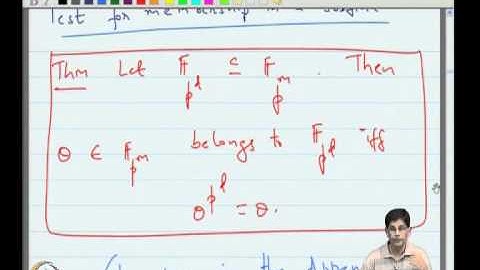 Test for membership in a subfield
Thm Let F_{p^d} ⊆ F_{p^m}. Then
θ ∈ F_{p^m} belongs to F_{p^d} iff
θ^{p^d} = θ.
in the Appen